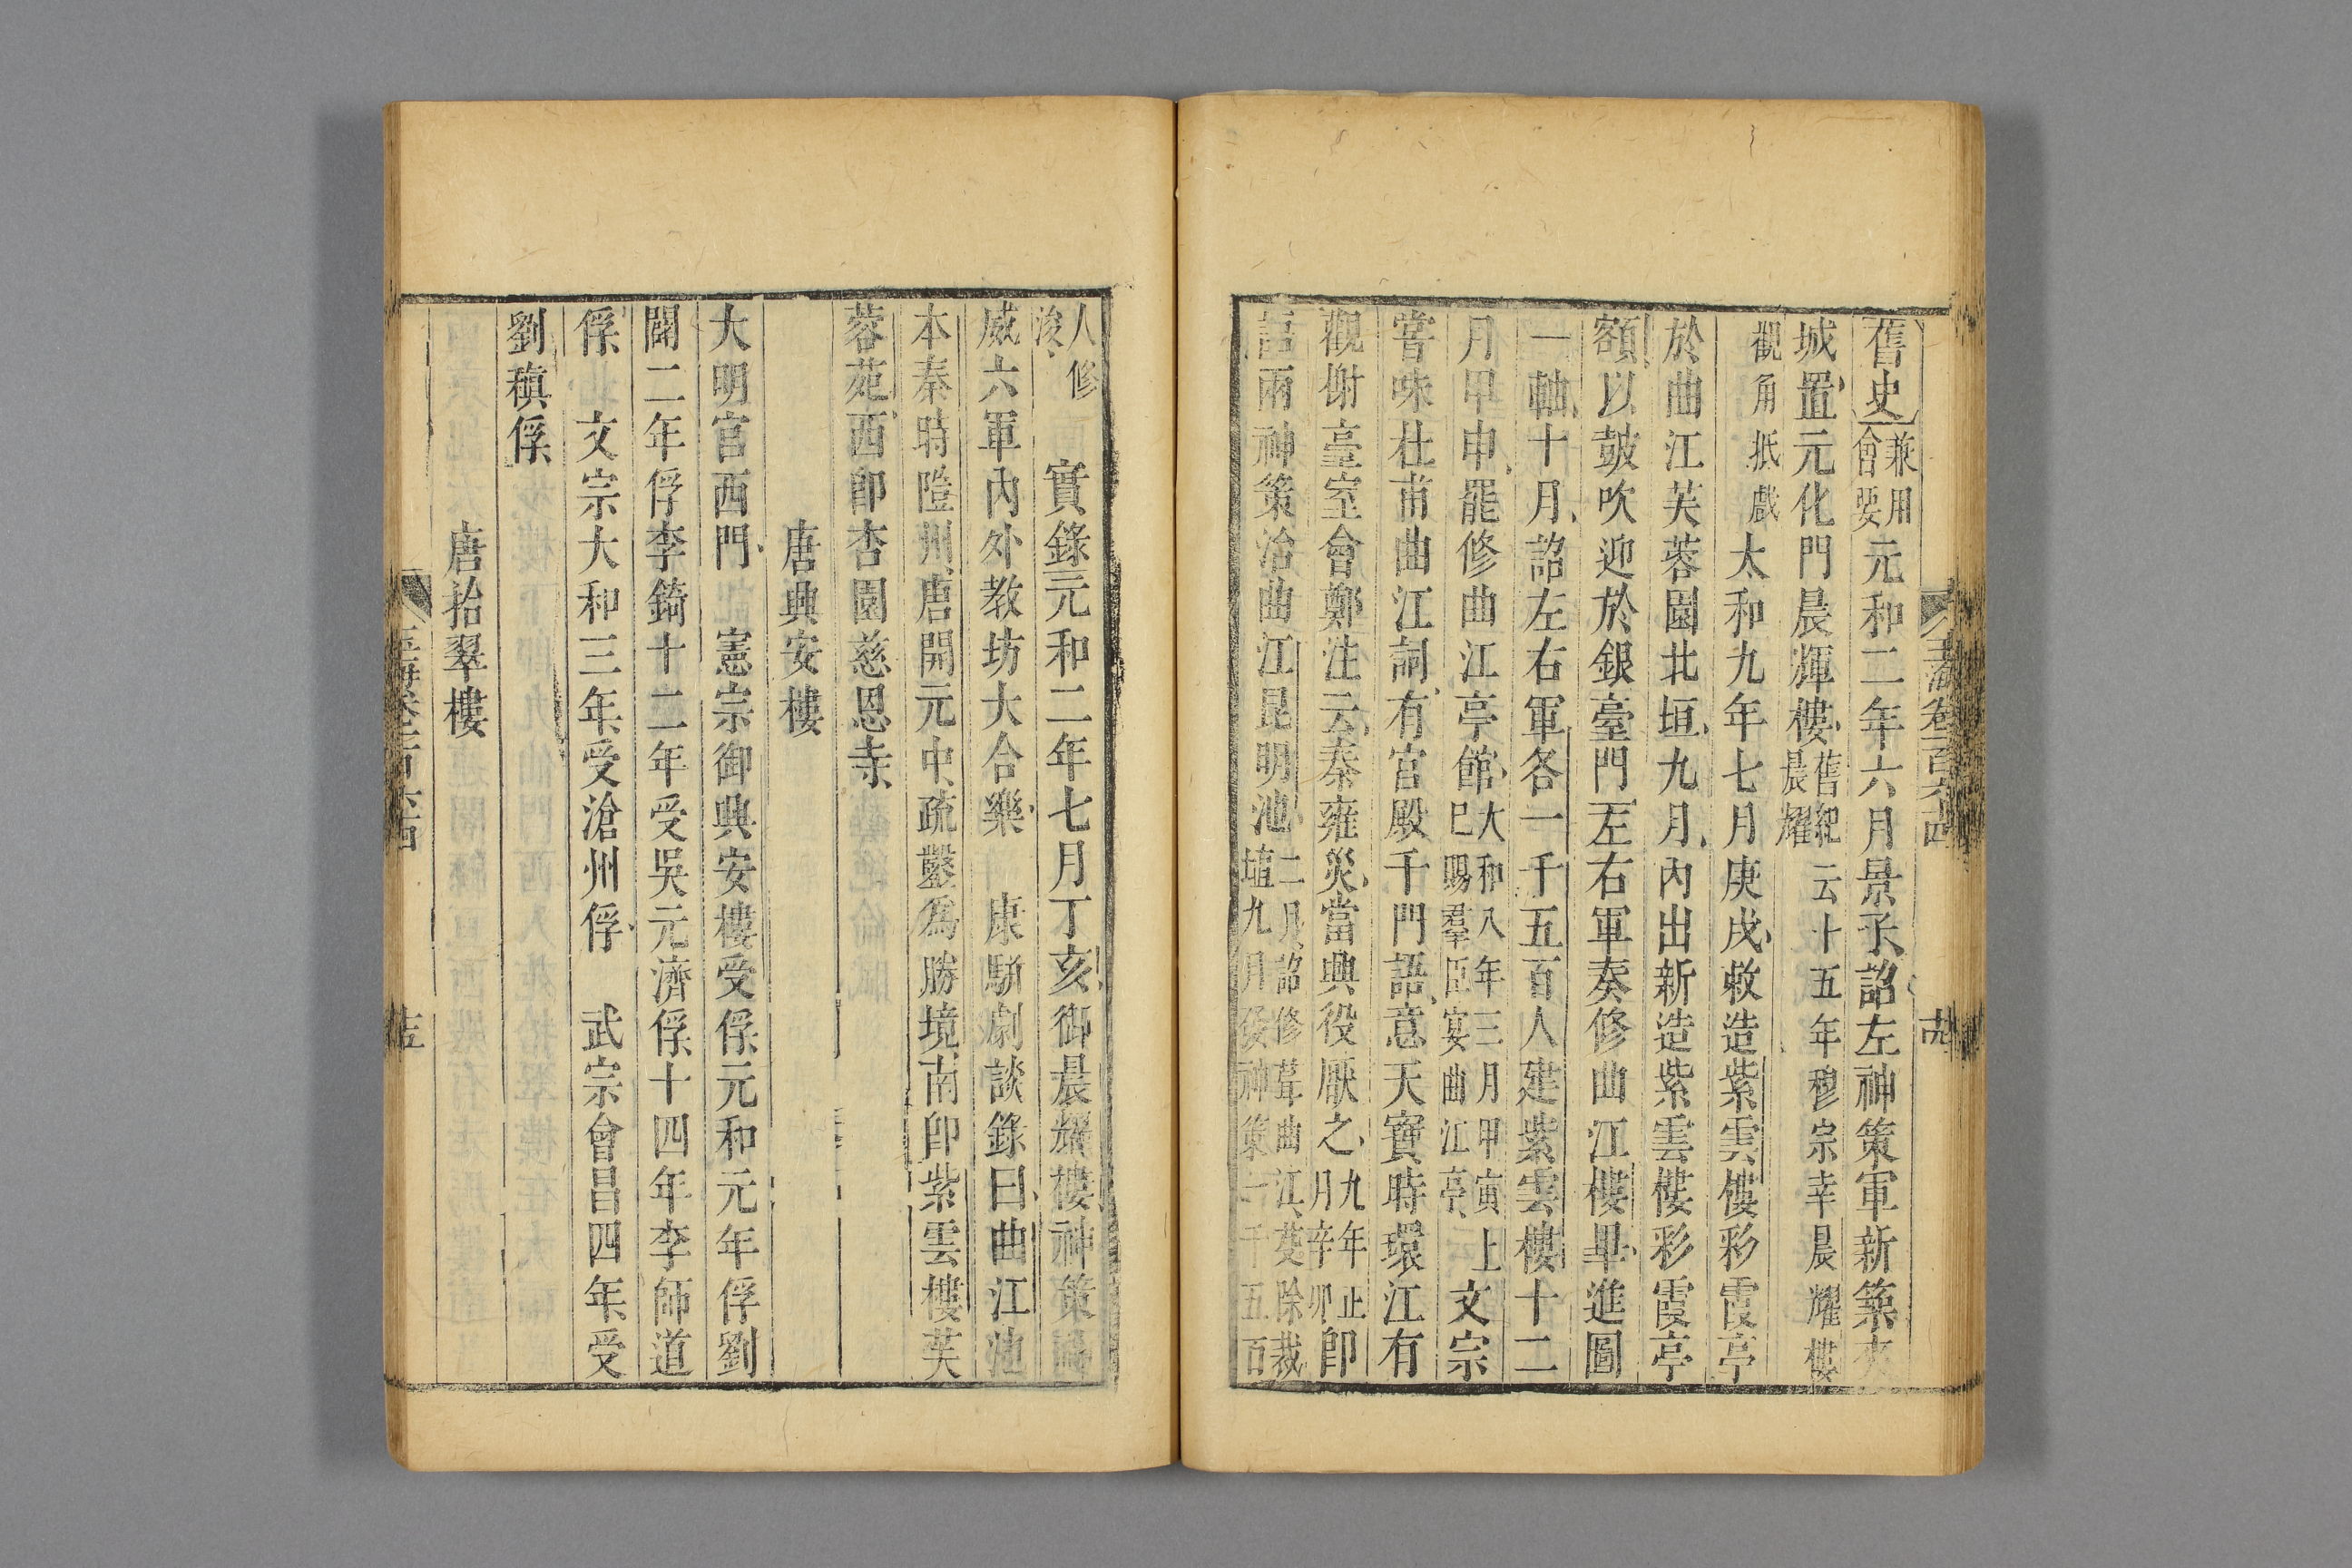 舊史兼用會要元和二年六月景子詔左神策軍新築夾
城置元化門晨輝樓舊紀云十五年穆宗幸晨耀樓
觀角抵戲太和九年七月庚戌敕造紫雲樓彩霞亭
於曲江芙蓉園北垣九月內出新造紫雲樓彩霞亭
額以鼓吹迎於銀臺門左右軍奏修曲江樓畢進圖
一軸十月詔左右軍各一千五百人建紫雲樓十二
月甲申罷修曲江亭館大和八年三月甲寅上巳賜羣臣宴曲江亭文宗
嘗味杜甫曲江詞有宮殿千門語意天寶時環江有
觀榭臺室會鄭注云秦雍災當興役厭之九年正月辛卯卽
詔兩神策治曲江昆明池二月詔修葺曲江茭除栽植九月發神策一千五百
玉海卷一百六十四
十四
人修浚實錄元和二年七月丁亥御晨耀樓神策
威六軍內外教坊大合樂康駢劇談錄曰曲江池
本秦時隑州唐開元中疏鑿爲勝境南卽紫雲樓芙
蓉苑西卽杏園慈恩寺
唐興安樓
大明宮西門憲宗御興安樓受俘元和元年俘劉
闢二年俘李錡十二年受吳元濟俘十四年李師道
俘文宗大和三年受滄州俘武宗會昌四年受
劉稹俘
唐拾翠樓
玉海卷一百六十四
十五